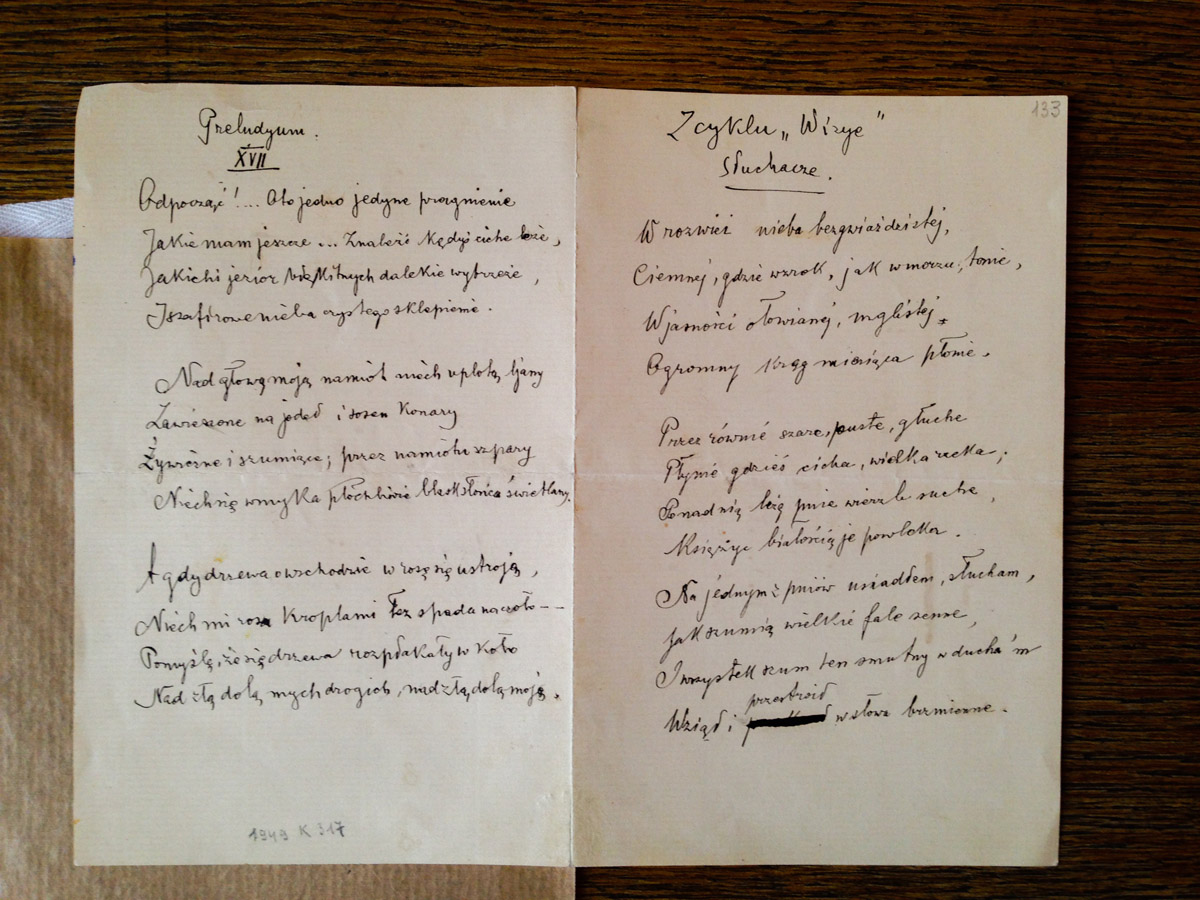 Preludyum.
XVII
Odpocząć!... Oto jedno jedyne pragnienie
Jakie mam jeszcze... Znaleść kędyś ciche leże,
Jakichś jeziór błękitnych dalekie wybrzeże,
I szafirowe nieba czystego sklepienie.
Nad głową moją namiot niech uplotą ljany
Zawieszone na jodeł i sosen konary
Żywiczne i szumiące; przez namiotu szpary
Niech się wmyka płochliwie blask słońca świetlany.
A gdy drzewa o wschodzie w rosę się ustroją,
Niech mi rosa kroplami łez spada na czoło--
Pomyślę, że się drzewa rozpłakały w koło
Nad złą dolą mych drogich, nad złą dolą moją.
1949 K 317
133
Z cyklu „Wizye"
Słuchacze.
W rozwiei nieba bezgwiaździstej,
Ciemnej, gdzie wzrok, jak w morzu, tonie,
W jasności ołowianej, mglistej
Ogromny krąg miesiąca płonie.
Przez równie szare, puste, głuche
Płynie gdzieś cicha, wielka rzeka;
Ponad nią leżą pnie wierzb suche,
Księżyc białością je powleka.
Na jednym z pniów usiadłem, słucham,
Jak szumią wielkie fale senne,
I wszystek szum ten smutny w ducha'm
przestroił
Wziął i w słowa brzmienne.